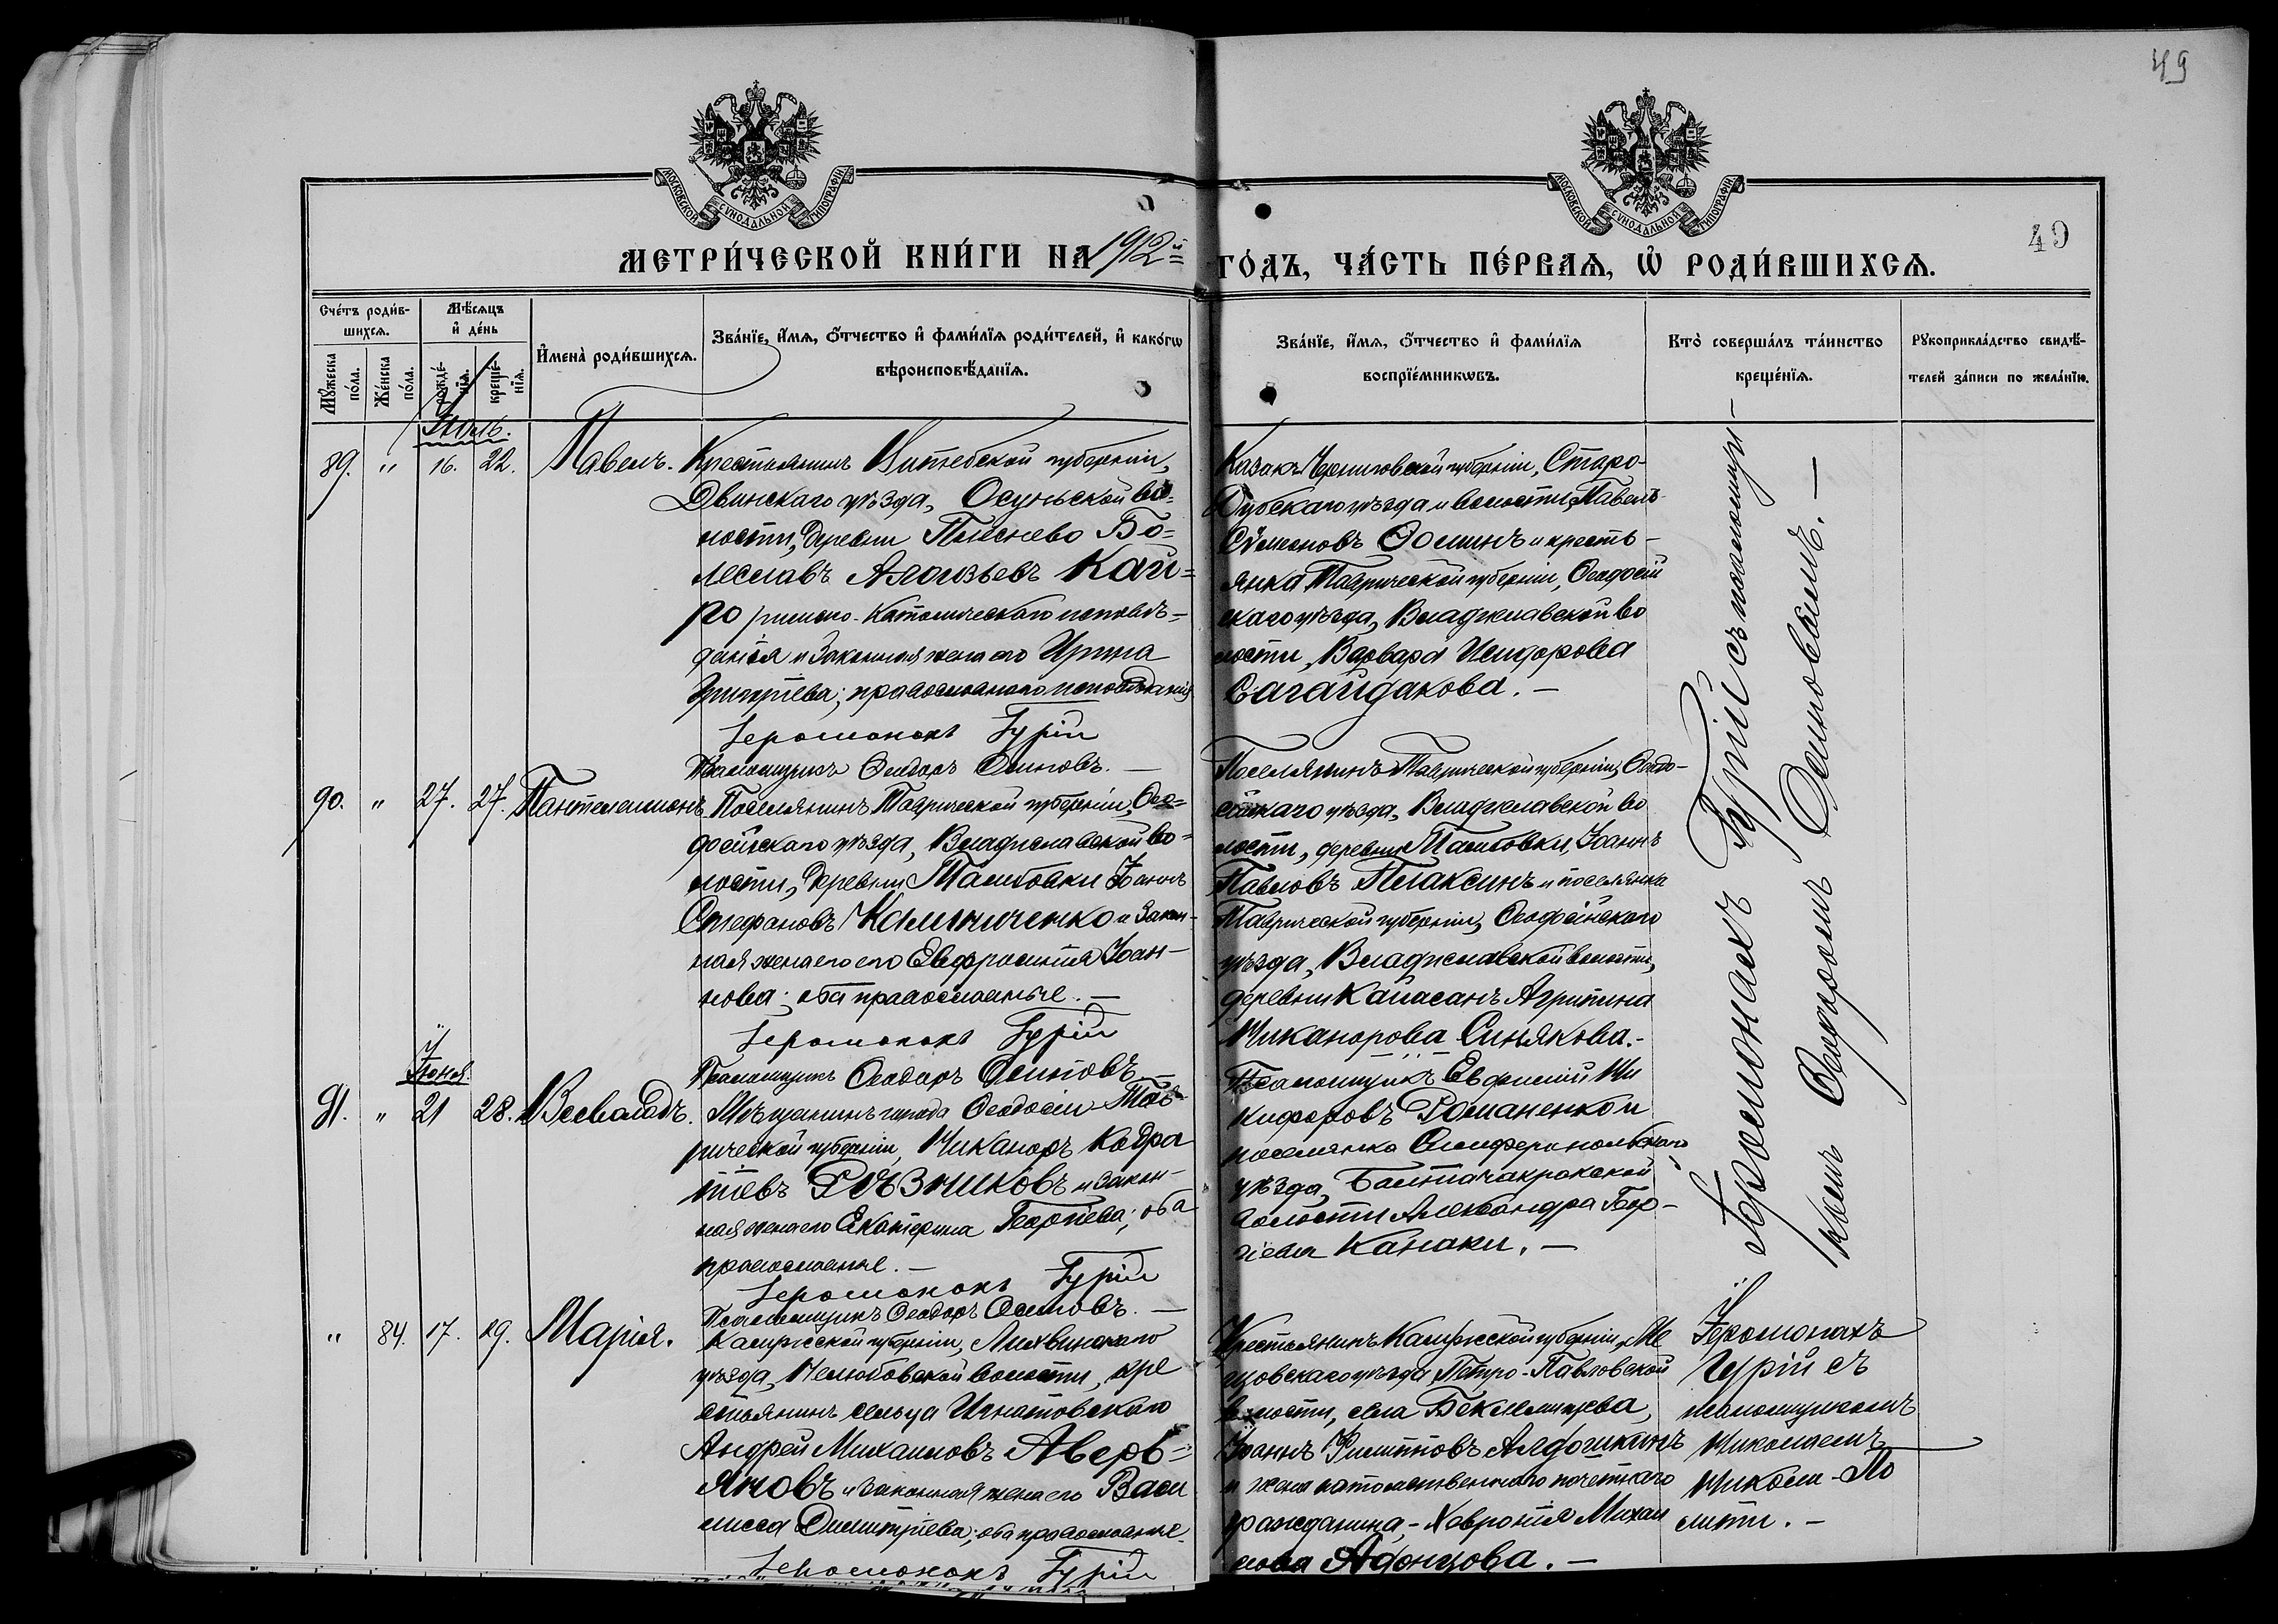 49
МОСКОВСКОЙ СУНОДАЛЬНОЙ ТИПОГРАФІИ
МОСКОВСКОЙ СУНОДАЛЬНОЙ ТИПОГРАФІИ
49
МЕТРИ́ЧЕСКОЙ КНИ́ГИ НА 1912й ГО́ДЪ, ЧА́СТЬ ПЕ́РВАѦ, Ѡ҆ РОДИ́ВШИХСѦ.
Счéтъ роди́в-
шихсѧ.
Мꙋ́жеска по́ла.
Же́нска по́ла.
Мѣ́сѧцъ
и҆ де́нь
рожде́-
нїѧ.
креще́-
нїѧ.
И҆мена̀ роди́вшихсѧ.
Зва́нїе, и҆́мѧ, ѻ҆́тчество и҆ фами́лїѧ роди́телей, и҆ како́гѡ
вѣроисповѣ́данїѧ.
Зва́нїе, и҆́мѧ, ѻ҆́тчество и҆ фами́лїѧ
воспрїе́мникѡвъ.
Кто̀ соверша́лъ та́инство
креще́нїѧ.
Рꙋкоприкла́дство свидѣ́-
телей за́писи по жела́нїю.
Іюль.
89. " 16. 22. Павелъ.
Крестьянинъ Витебской губерніи,
Двинскаго уѣзда, Осуньской во=
лости, деревни Плиснево Бо=
леславъ Алоизьевъ Кай=
ро римско-католическаго исповѣ=
данія и законная жена его Ирина
Григоріева; православнаго исповѣданія
Іеромонахъ Гурій
Псаломщикъ Ѳеодоръ Осиповъ. —
Казакъ Черниговской губерніи, Старо-
Дубскаго уѣзда и волости, Павелъ
Сѵмеоновъ Ѳоминъ и кресть-
янка Таврической губерніи, Ѳеодосій
скаго уѣзда, Владиславской во
лости, Варвара Исидорова
Сагайдакова. —
Іеромонахъ Гурій съ псаломщи-
комъ Ѳеодоромъ Осиповымъ. —
90. " 27. 27. Пантелеимонъ
Поселянинъ Таврической губерніи, Ѳео=
досійскаго уѣзда, Владиславской во=
лости, деревни Ташовки Іоаннъ
Стефановъ Калиниченко и закон-
ная жена его Евфросинія Іоан-
нова; оба православные. —
Іеромонахъ Гурій
Псаломщикъ Ѳеодоръ Осиповъ
Поселянинъ Таврической губерніи, Ѳеодо-
сійскаго уѣзда, Владиславской во
лости, деревни Ташовки, Іоаннъ
Павловъ Плаксинъ и поселянка
Таврической губерніи, Ѳеодосійскаго
уѣзда, Владиславской волости,
деревни Капасанъ Агрипина
Никанорова Синякова. -
Іюня.
91. " 21 28. Всеволодъ.
Мѣщанинъ города Ѳеодосіи Тав-
рической губерніи, Никаноръ Кодра
тіевъ Рѣзниковъ и закон-
ная жена его Екатерина Георгіева; оба
православные. —
Іеромонахъ Гурій
Псаломщикъ Ѳеодоръ Осиповъ. —
Псаломщикъ Евфимій Ни
кифоровъ Романенко и
поселянка Симферопольскаго
уѣзда, волости Александра Геор-
гіева Канаки. —
" 84. 17. 29. Марія.
Калужской губерніи, Лихвинскаго
уѣзда, Нелюбовской волости, кре
стьянинъ сельца Игнатовскаго
Андрей Михаиловъ Аверь=
яновъ и законная жена его Васи
лисса Димитріева; оба православные.
Іеромонахъ Гурій
Крестьянинъ Калужской губерніи, Ме
щовскаго уѣзда, Петро-Павловской
волости, села Беклемищева,
Іоаннъ Филипповъ Алдошкинъ
и жена потомственнаго почетнаго
гражданина, - Хавронія Михаи
лова Афонцова. —
Іеромонахъ
Гурій съ
псаломщикомъ
Николаемъ